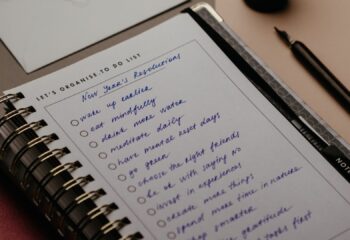 LET'S ORGANISE TO DO LIST
New Year's Resolutions
wake up earlier
eat mindfully
drink more water
meditate daily
have mental reset days
go green
choose the right friends
be ok with saying no
invest in experiences
create more things
spend more time in nature
smarter
gratitude
tasks first
NOTES